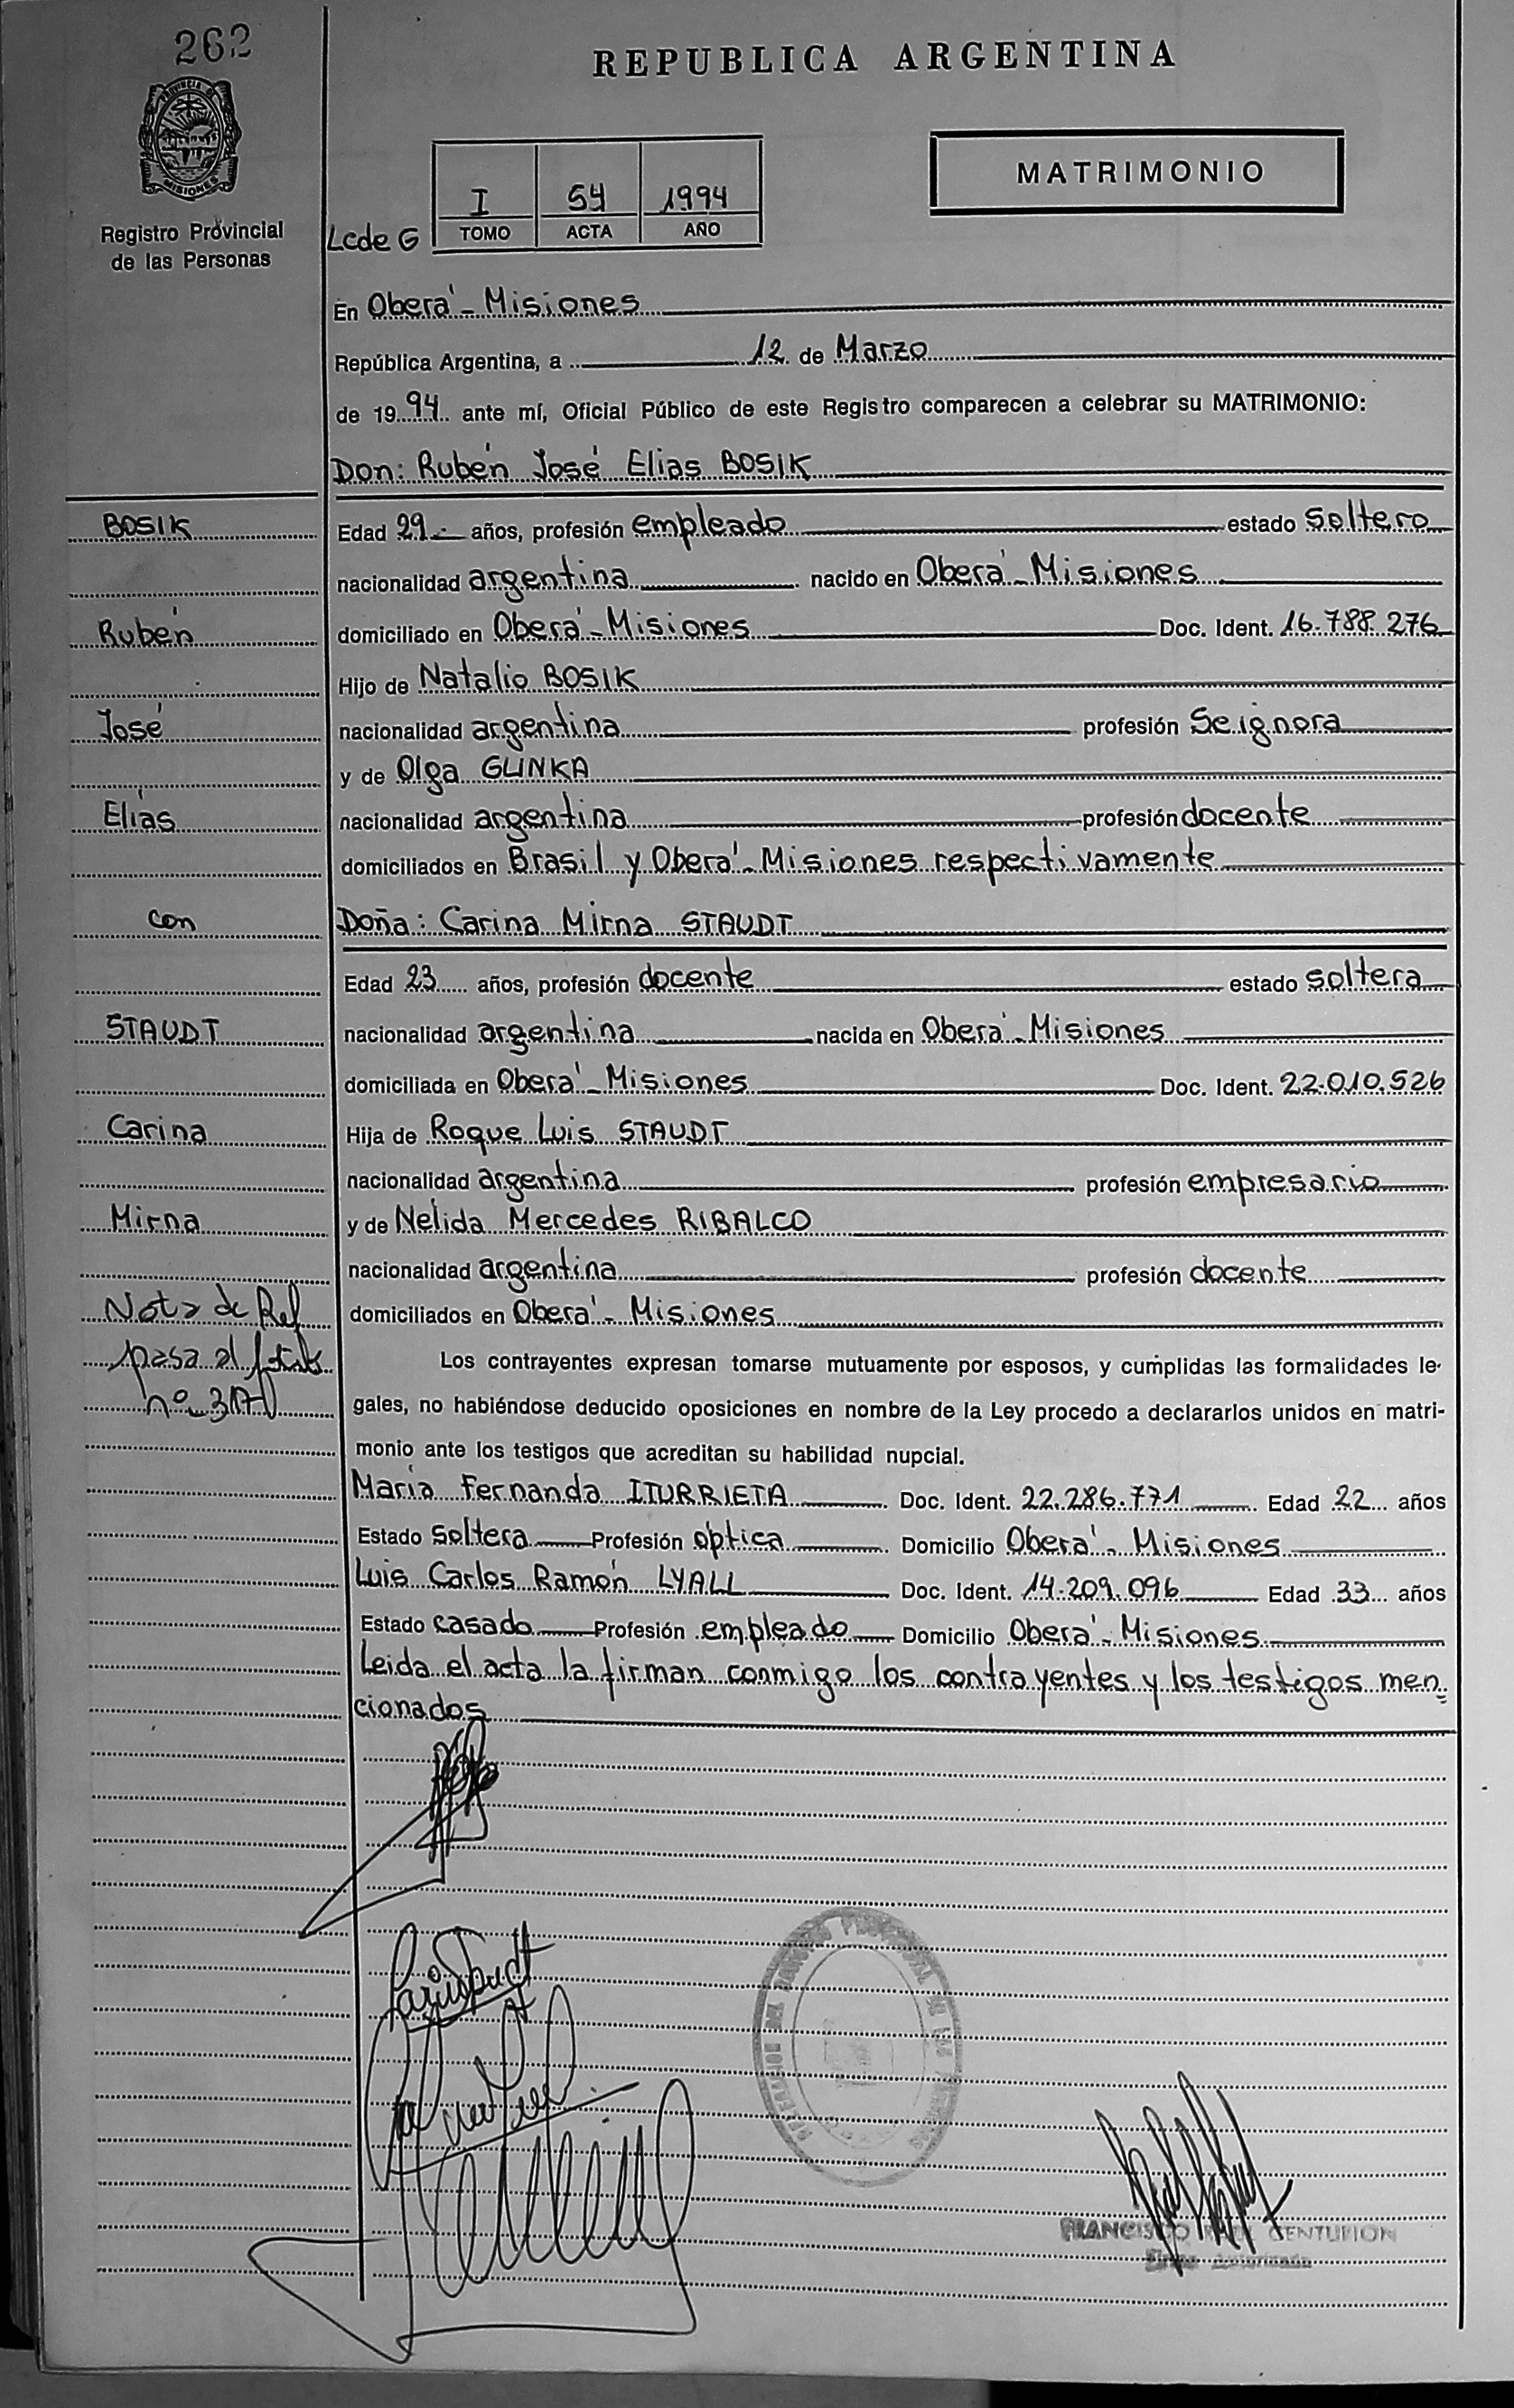 262
REPUBLICA ARGENTINA
PROVINCIA DE
MISIONES
Registro Provincial
de las Personas
MATRIMONIO
I 54 1994
Lcde G TOMO ACTA AÑO
En Oberá - Misiones
República Argentina, a 12 de Marzo
de 1994 ante mí, Oficial Público de este Registro comparecen a celebrar su MATRIMONIO:
Don: Rubén José Elias BOSIK
BOSIK
Edad 29.- años, profesión empleado estado soltero
nacionalidad argentina nacido en Oberá - Misiones
Rubén
domiciliado en Oberá - Misiones Doc. Ident. 16.788.276
Hijo de Natalio BOSIK
José
nacionalidad argentina profesión Se ignora
y de Olga GLINKA
Elías
nacionalidad argentina profesión docente
domiciliados en Brasil y Oberá - Misiones respectivamente
con
Doña: Carina Mirna STAUDT
Edad 23 años, profesión docente estado soltera
STAUDT
nacionalidad argentina nacida en Oberá - Misiones
domiciliada en Oberá - Misiones Doc. Ident. 22.010.526
Carina
Hija de Roque Luis STAUDT
nacionalidad argentina profesión empresario
Mirna
y de Nélida Mercedes RIBALCO
nacionalidad argentina profesión docente
Nota de Ref
domiciliados en Oberá - Misiones
pasa al
Los contrayentes expresan tomarse mutuamente por esposos, y cumplidas las formalidades le-
nº
gales, no habiéndose deducido oposiciones en nombre de la Ley procedo a declararlos unidos en matri-
monio ante los testigos que acreditan su habilidad nupcial.
María Fernanda ITURRIETA Doc. Ident. 22.286.771 Edad 22 años
Estado soltera Profesión óptica Domicilio Oberá - Misiones
Luis Carlos Ramón LYALL Doc. Ident. 14.209.096 Edad 33 años
Estado casado Profesión empleado Domicilio Oberá - Misiones
Leida el acta la firman conmigo los contrayentes y los testigos men=
cionados
FRANCISCO CENTURION
Firma Autorizada